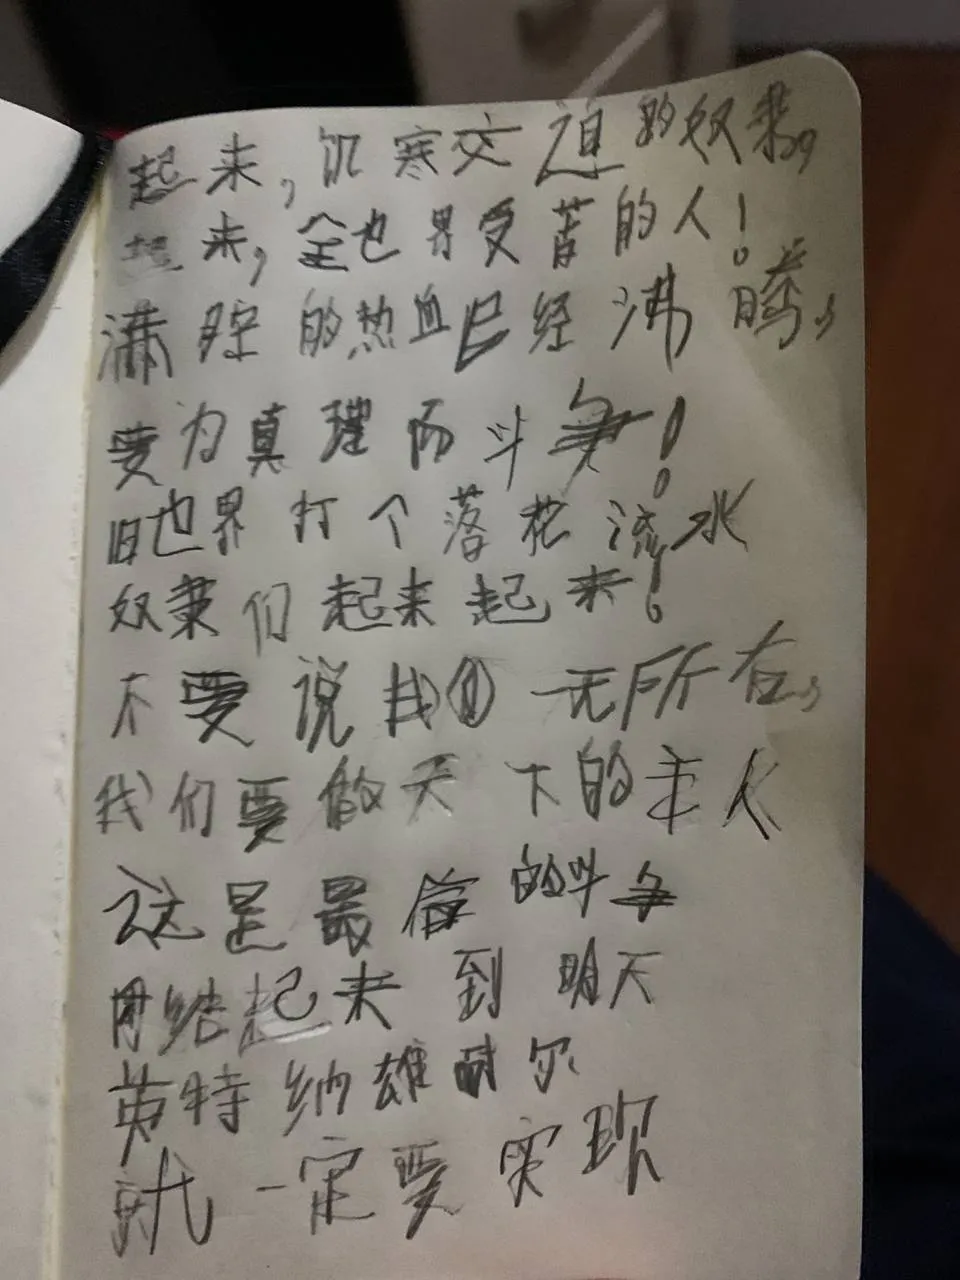 起来,饥寒交迫的奴隶,
起来,全世界受苦的人!
满腔的热血已经沸腾,
要为真理而斗争!
旧世界打个落花流水
奴隶们起来起来!
不要说我们一无所有,
我们要做天下的主人
这是最后的斗争
团结起来到明天
英特纳雄耐尔
就一定要实现